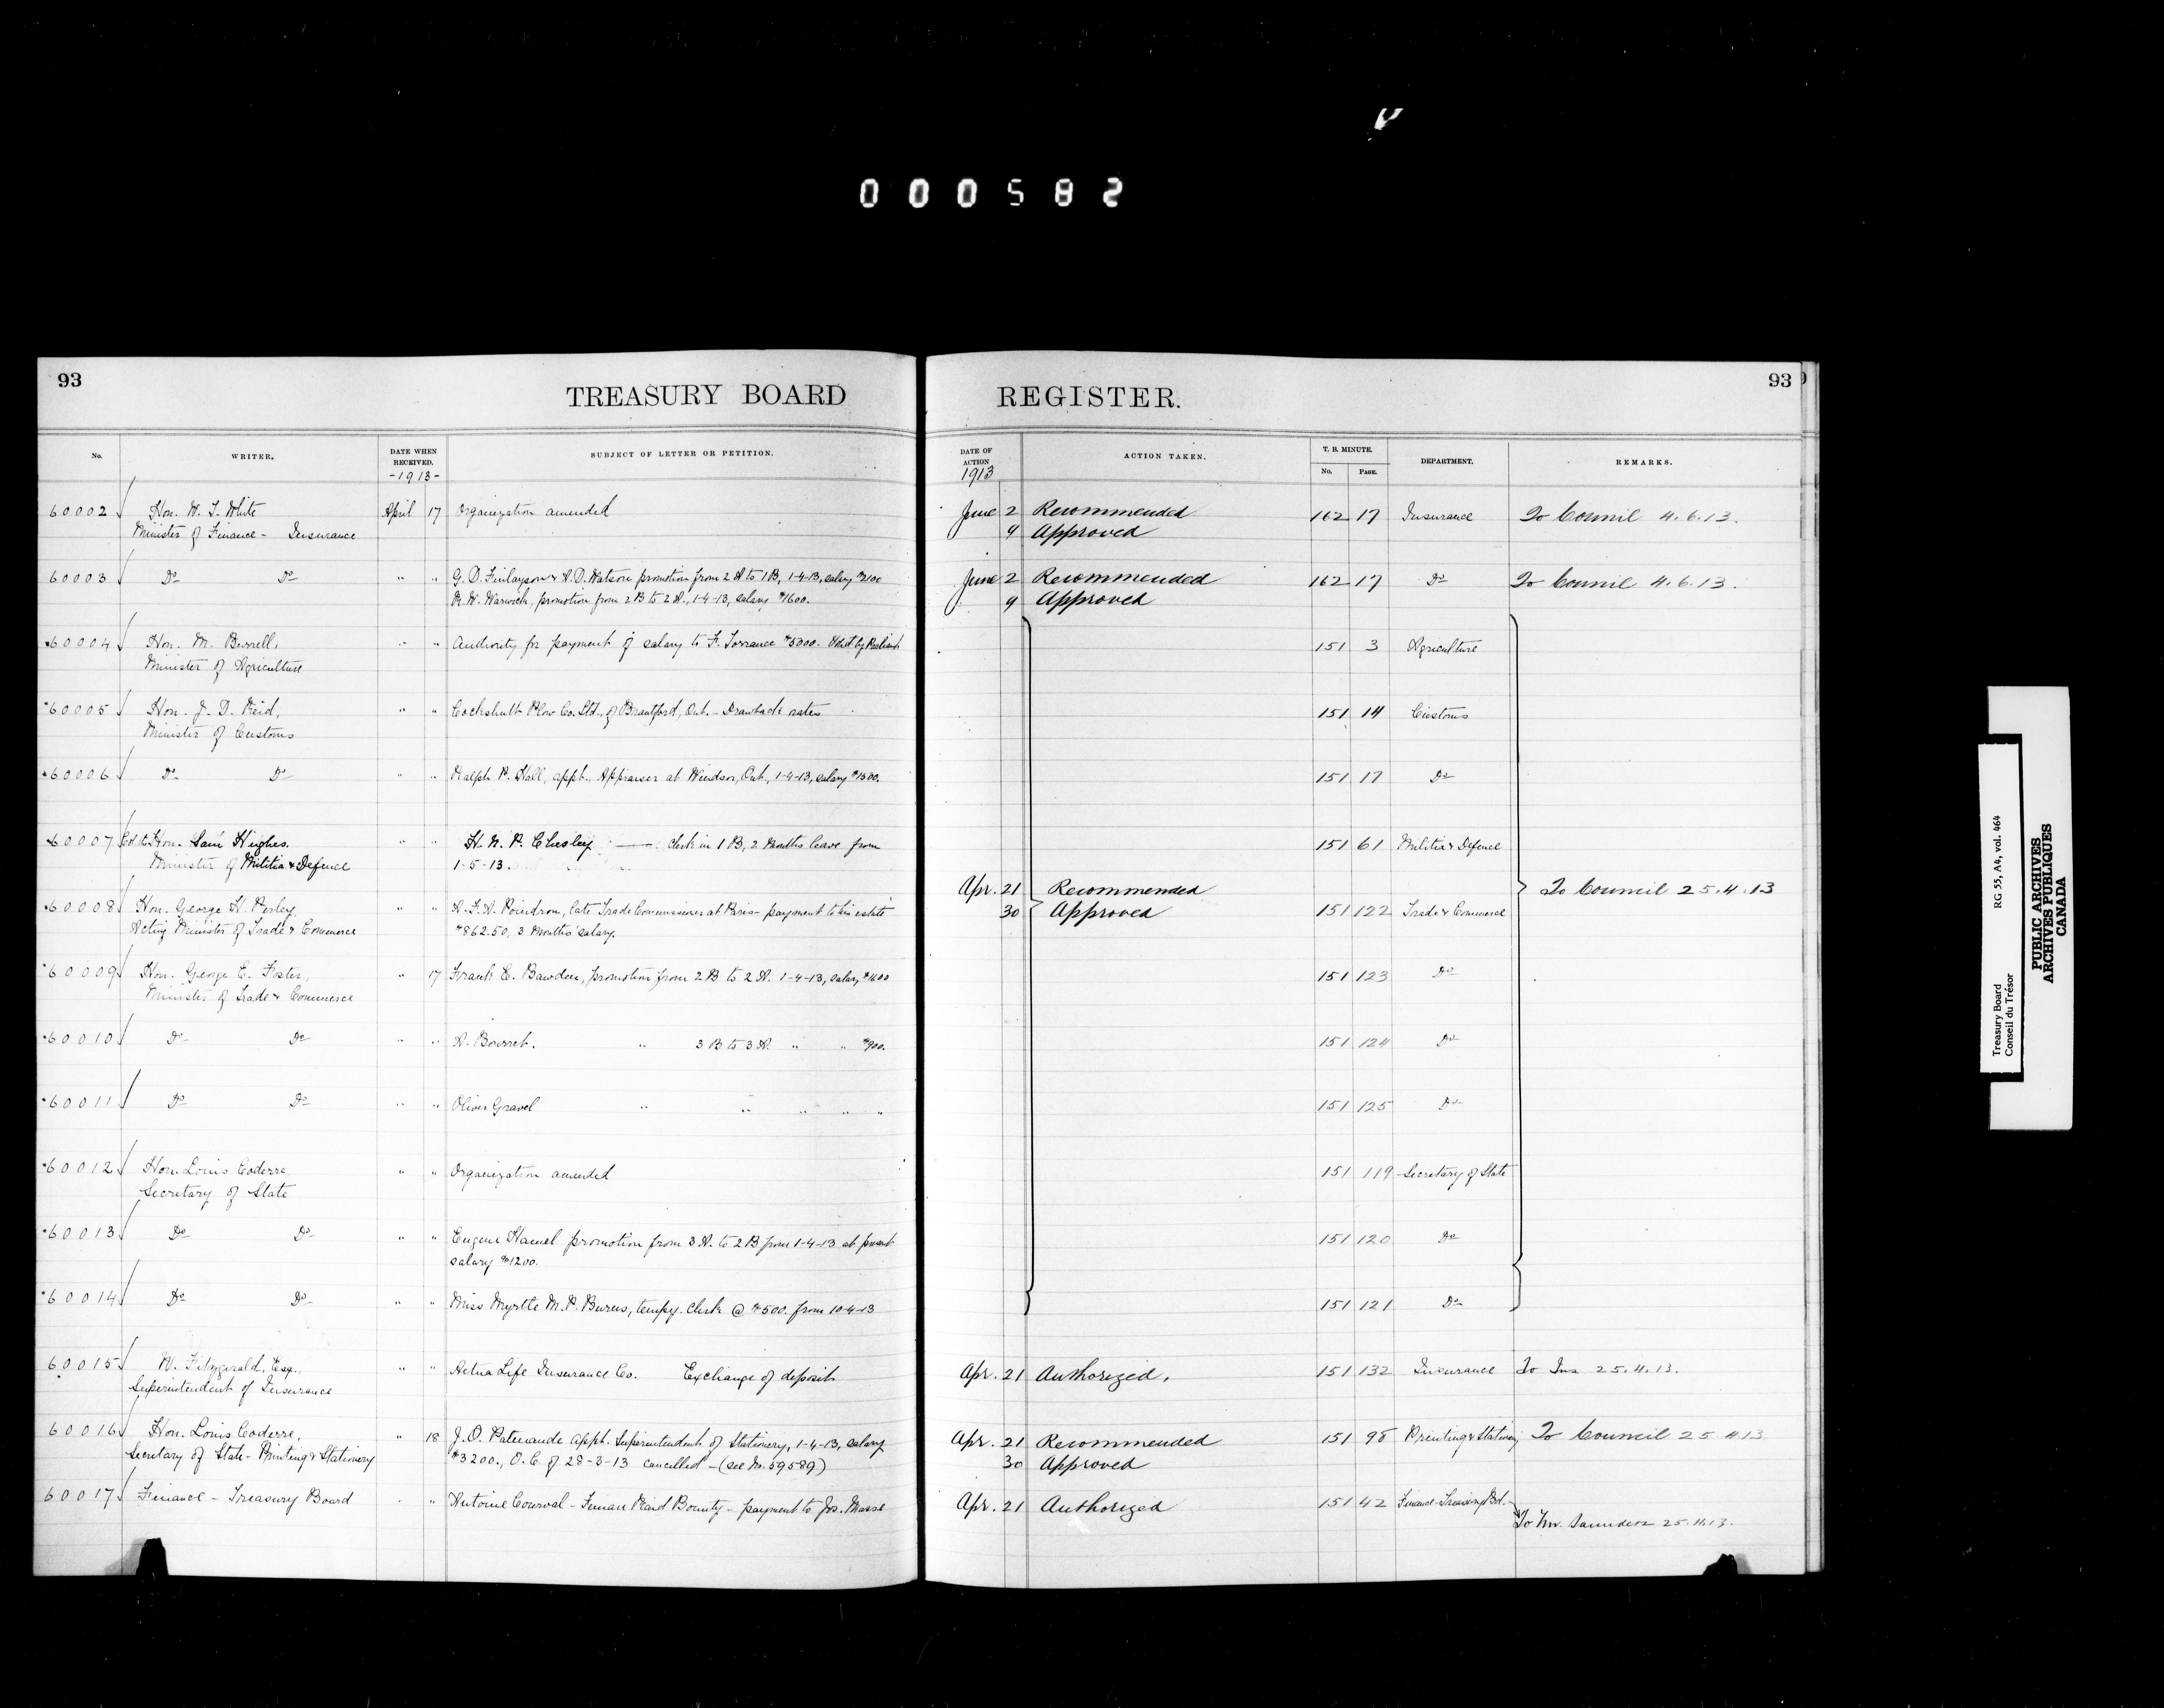 000582
93
TREASURY BOARD REGISTER.
93
No. WRITER. DATE WHEN RECEIVED. SUBJECT OF LETTER OR PETITION. DATE OF ACTION ACTION TAKEN. T. B. MINUTE. No. PAGE. DEPARTMENT. REMARKS.
-1913- 1913
60002 Hon. W. T. White April 17 Organization amended June 2 Recommended 162 17 Insurance To Council 4.6.13.
Minister of Finance - Insurance 4 Approved
60003 Do Do " " G. D. Finlayson & A. D. Watson promotion from 2 A to 1 B, 1-4-13, salary $2100 June 2 Recommended 162 17 Do To Council 4.6.13.
R. W. Warwick, promotion from 2 B to 2 A., 1-4-13, salary $1600. 4 Approved
60004 Hon. M. Burrell, " " Authority for payment of salary to F. Torrance $5000. 151 3 Agriculture
Minister of Agriculture
60005 Hon. J. D. Reid, " " Cockshutt Plow Co. Ltd., of Brantford, Ont. - Drawback rates 151 14 Customs
Minister of Customs
60006 Do Do " " Ralph P. Hall, appt. Appraiser at Windsor, Ont., 1-4-13, salary $1500. 151 17 Do
60007 Col. the Hon. Sam Hughes. " " H. N. P. Chesley — clerk in 1 B, 2 Months leave from 151 61 Militia & Defence
Minister of Militia & Defence 1-5-13.
Apr. 21 Recommended To Council 25.4.13
60008 Hon. George H. Perley, " " A. F. A. Poindron, late Trade Commissioner at Paris - payment to his estate 30 Approved 151 122 Trade & Commerce
Acting Minister of Trade & Commerce $862.50, 3 Months' salary.
60009 Hon. George E. Foster, " 17 Frank C. Bawden, promotion from 2 B to 2 A. 1-4-13, salary $1600 151 123 Do
Minister of Trade & Commerce
60010 Do Do " " A. " 3 B to 3 A. " " $900. 151 124 Do
60011 Do Do " " Oliver Gravel " " " " " 151 125 Do
60012 Hon. Louis Coderre, " " Organization amended 151 119 Secretary of State
Secretary of State
60013 Do Do " " Eugene Hamel promotion from 3 A. to 2 B from 1-4-13 at present 151 120 Do
salary $1200.
60014 Do Do " " Miss Myrtle M. P. Burns, tempy. Clerk @ $500. from 10-4-13 151 121 Do
60015 W. Fitzgerald, Esq., " " Aetna Life Insurance Co. Exchange of deposit Apr. 21 Authorized. 151 132 Insurance To Ins 25.4.13.
Superintendent of Insurance
60016 Hon. Louis Coderre, " 18 J. O. Patenaude appt. Superintendent of Stationery, 1-4-13, salary Apr. 21 Recommended 151 98 Printing & Stationery To Council 25 4 13
Secretary of State - Printing & Stationery $3200., O. C. of 28-3-13 cancelled - (see No. 59589) 30 Approved
60017 Finance - Treasury Board " " Antoine Courval - Fenian Raid Bounty - payment to Jos. Masse Apr. 21 Authorized 151 42 Finance - Treasury Bd.
To Mr. Saunders 25.4.13.
Treasury Board RG 55, A4, vol. 464
Conseil du Trésor
PUBLIC ARCHIVES
ARCHIVES PUBLIQUES
CANADA